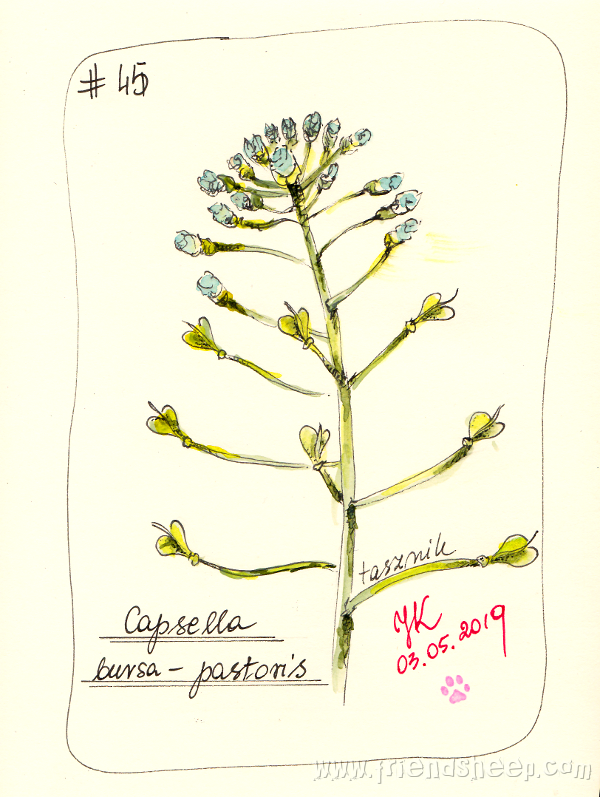 # 45
tasznik
Capsella
bursa - pastoris
YK
03.05.2019
www.friendsheep.com